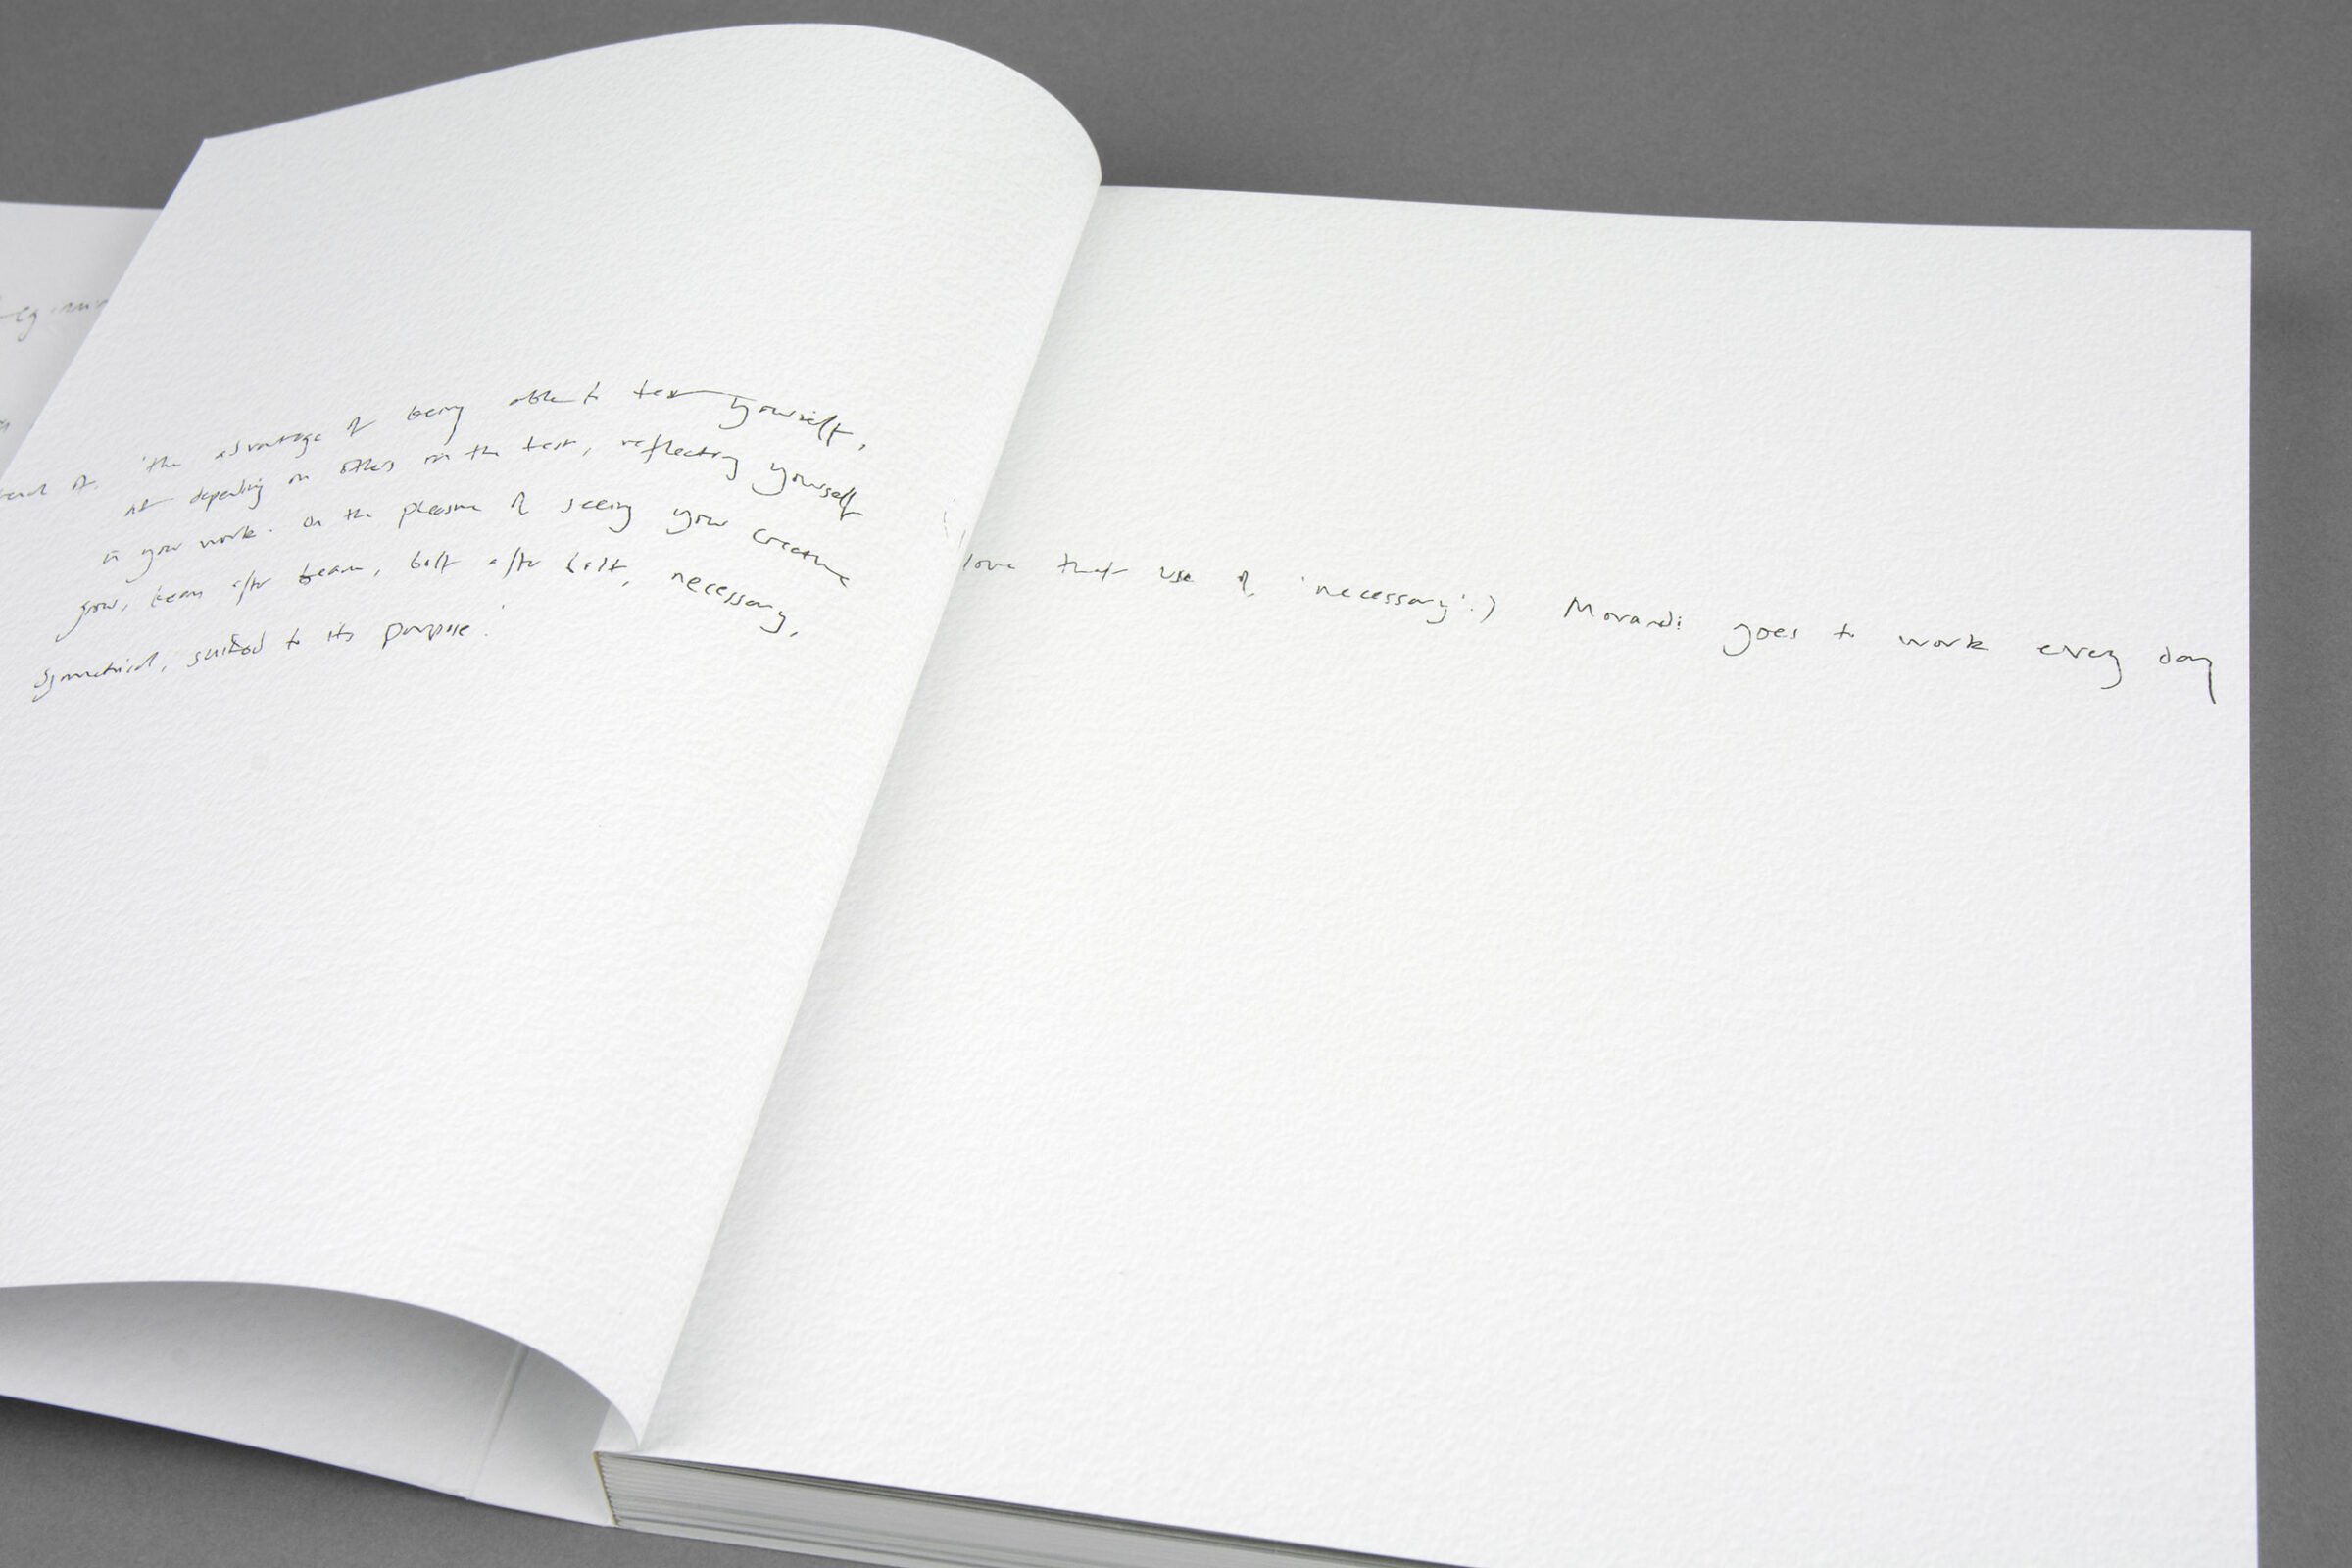 of. 'the advantage of being able to test yourself,
not depending on others in the test, reflecting yourself
in your work. On the pleasure of seeing your creature
grow, beam after beam, bolt after bolt, necessary,
symmetrical, suited to its purpose.'
love that use of 'necessary'.) Morandi goes to work every day